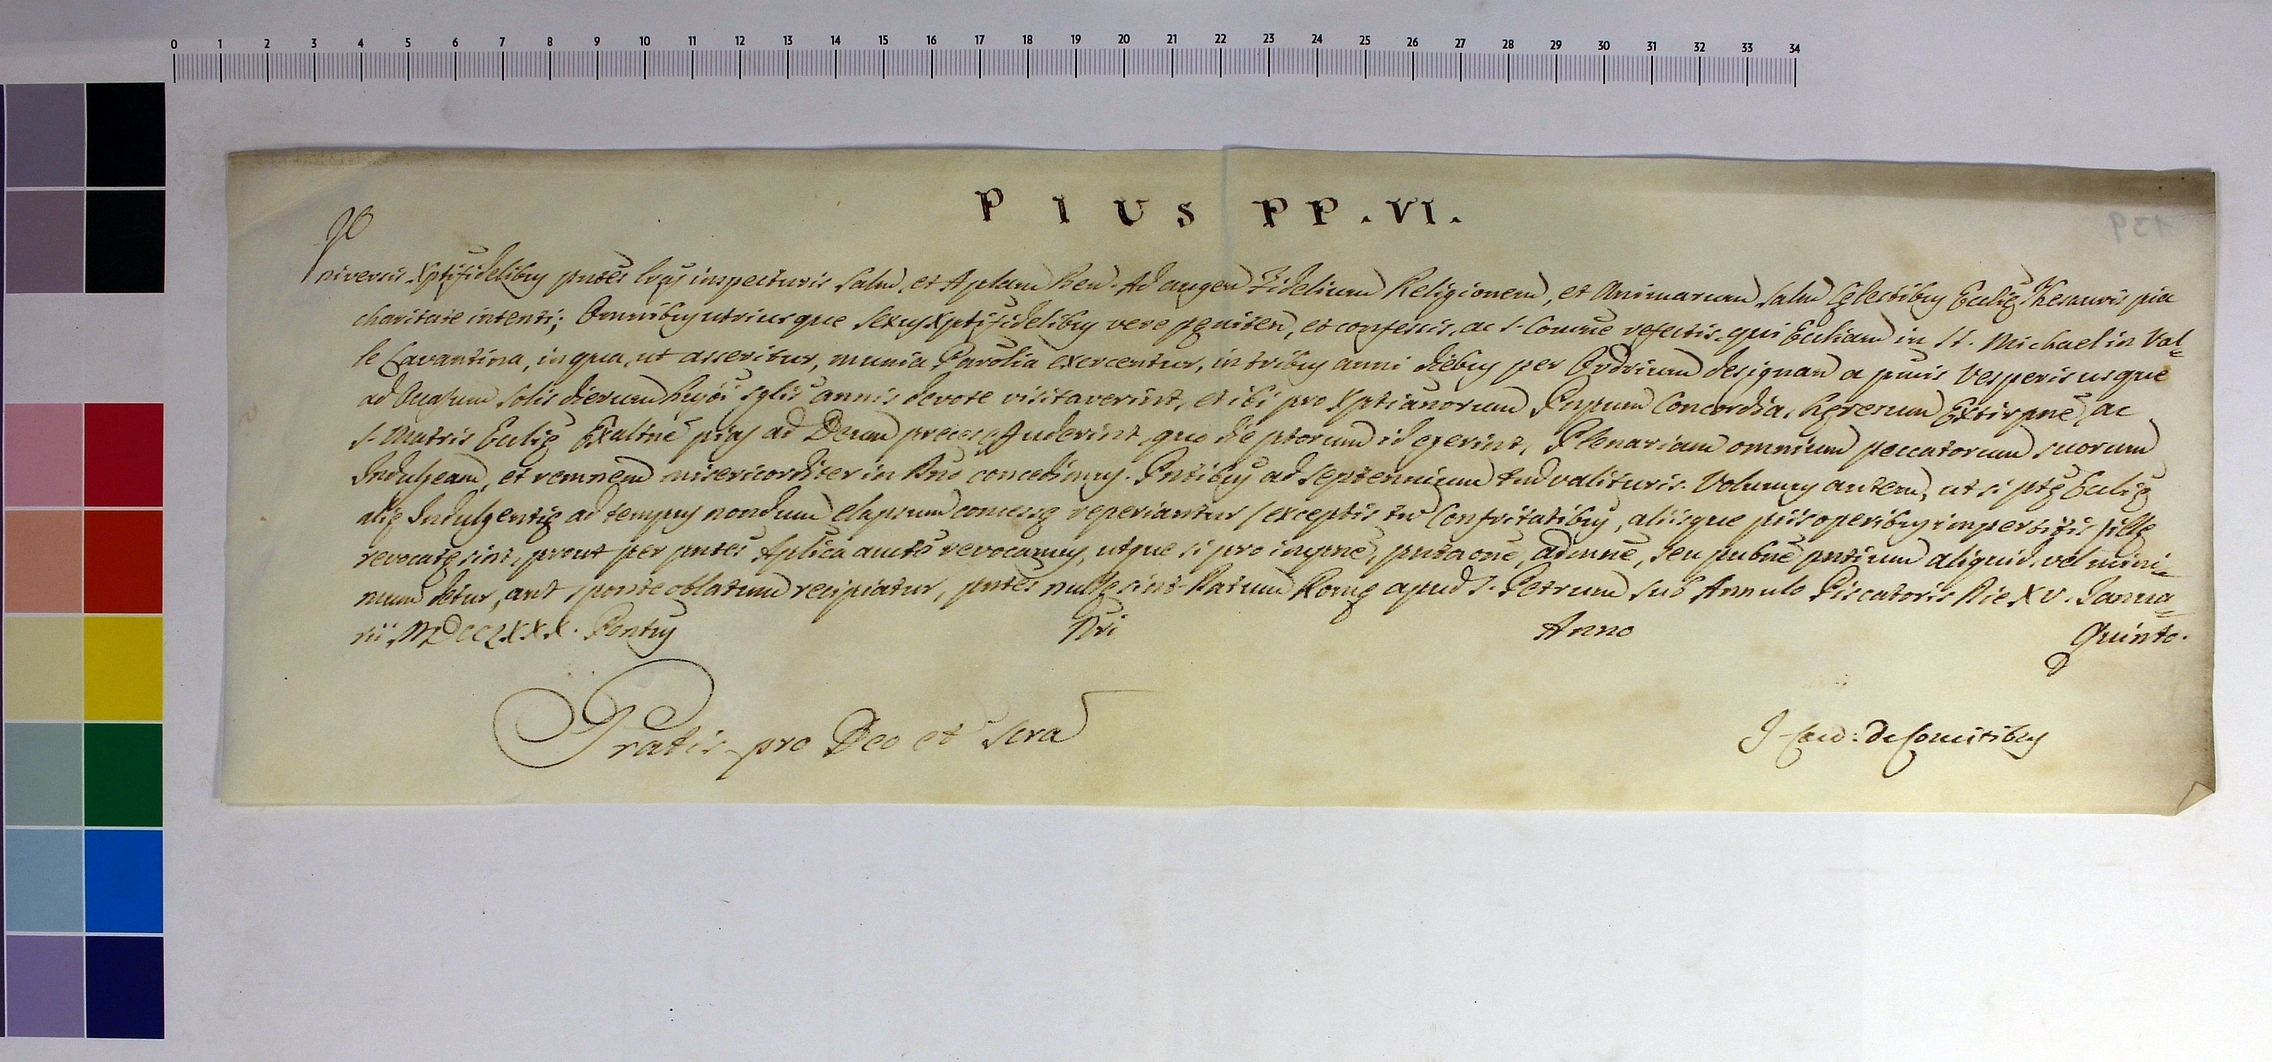 0 1 2 3 4 5 6 7 8 9 10 11 12 13 14 15 16 17 18 19 20 21 22 23 24 25 26 27 28 29 30 31 32 33 34
PIUS PP. VI.
139
Universis Xptifidelibus pntes lras inspecturis Salm, et Aplcam Ben. Ad augen Fidelium Religionem, et Animarum Salm Celestibus Ecclię Thesauris pia
charitate intenti; Omnibus utriusque sexus Xptifidelibus vere peniten, et confessis, ac S. Comne refectis, qui Eccliam in St. Michael in Val-
le Lavantina, in qua, ut asseritur, munia Parolia exercentur, in tribus anni diebus per Ordrium designan a pmis Vesperis usque
ad Occasum Solis dierum hujoi sglis annis devote visitaverint, et ibi pro Xptianorum Pnpum Concordia, hęresum Extirpne, ac
S. Matris Ecclię Exaltne pias ad Deum preces effuderint, quo die ptorum id egerint, Plenariam omnium peccatorum suorum
Indulgeam, et remnem misericorditer in Dno concedimus. Pntibus ad Septennium tm valituris. Volumus autem, ut si ptę Ecclię
alię Indulgentię ad tempus nondum elapsum concessę reperiantur (exceptis tn Confritatibus, aliisque piis operibus impertitis) illę
revocatę sint, prout per pntes Aplica aucte revocamus, utque si pro impne, pntaone, admne, seu pubne pntium aliquid, vel mini-
mum detur, aut sponte oblatum recipiatur, pntes nullę sint. Datum Romę apud S. Petrum sub Annulo Piscatoris Die XV. Janua-
rii MDCCLXXX. Pontus Nri Anno Quinto.
Gratis pro Deo et Scra
J. Card: de Comitibus